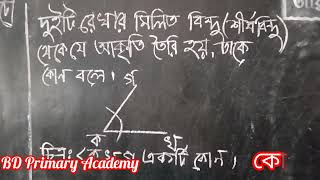 দুইটি রেখার মিলিত বিন্দু (শীর্ষবিন্দু)
থেকে যে আকৃতি তৈরি হয়, তাকে
কোন বলে।
গ
ক
খ
চিত্র: একটি কোন।
কো
BD Primary Academy